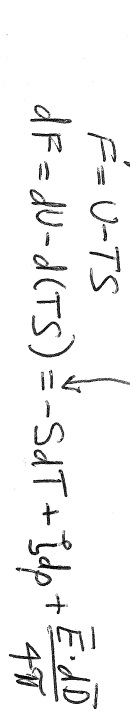 F = U - TS
dF = dU - d(TS) = -SdT + ξdρ + E̅·dD̅/4π